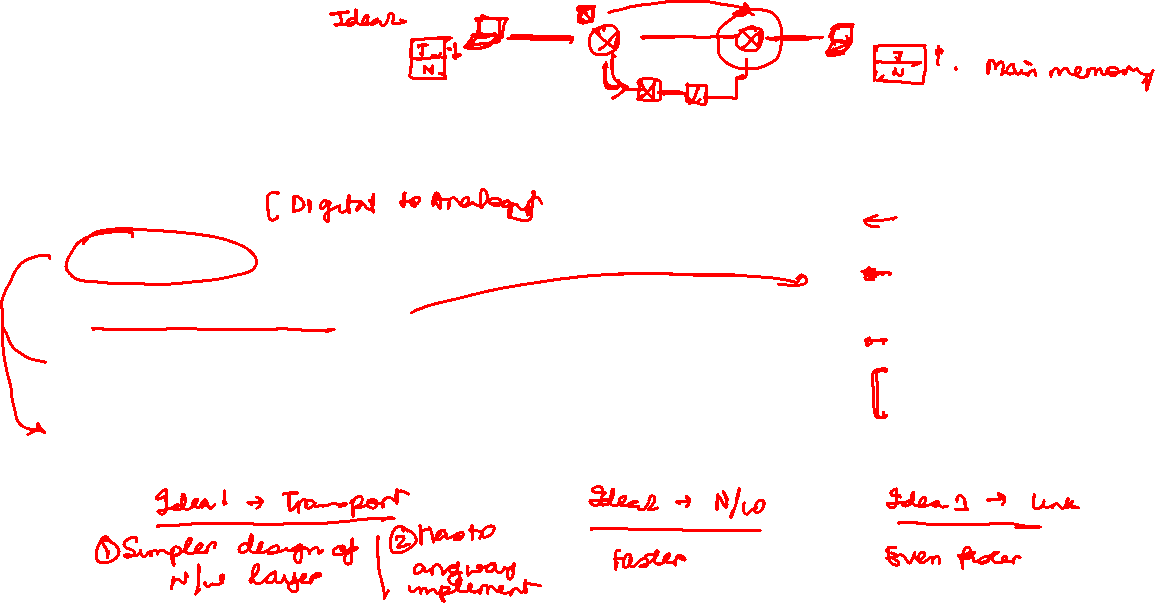 Idea 2
T
N
T
N
Main memory
[ Digital to Analog
Idea 1 → Transport
① Simpler design of
N/w layer
② Has to
anyway
implement
Idea 2 → N/w
Faster
Idea 3 → Link
Even faster